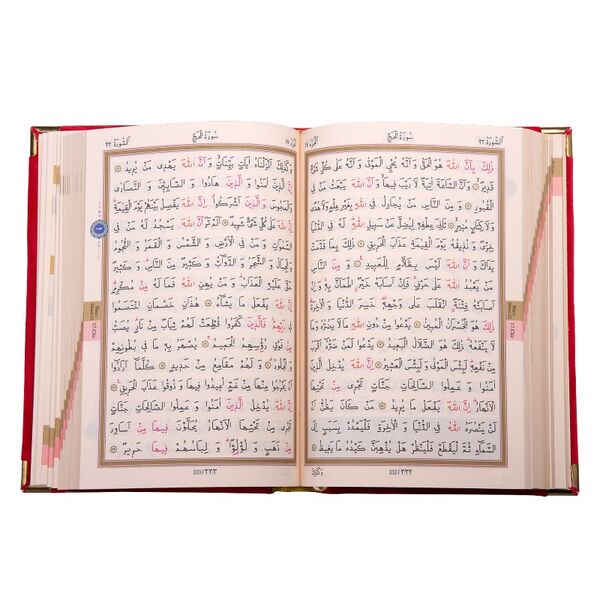 اَلسُّورَةُ ٢٢ سُورَةُ الْحَجِّ
ذٰلِكَ بِاَنَّ اللّٰهَ هُوَ الْحَقُّ وَاَنَّهُ يُحْيِ الْمَوْتٰى وَاَنَّهُ عَلٰى كُلِّ شَيْءٍ
قَدِيرٌ وَاَنَّ السَّاعَةَ اٰتِيَةٌ لَا رَيْبَ فِيهَا وَاَنَّ اللّٰهَ يَبْعَثُ مَنْ فِي
الْقُبُورِ وَمِنَ النَّاسِ مَنْ يُجَادِلُ فِي اللّٰهِ بِغَيْرِ عِلْمٍ وَلَا هُدًى
وَلَا كِتَابٍ مُنِيرٍ ثَانِيَ عِطْفِهِ لِيُضِلَّ عَنْ سَبِيلِ اللّٰهِ لَهُ فِي الدُّنْيَا
خِزْيٌ وَنُذِيقُهُ يَوْمَ الْقِيٰمَةِ عَذَابَ الْحَرِيقِ ذٰلِكَ بِمَا قَدَّمَتْ
يَدَاكَ وَاَنَّ اللّٰهَ لَيْسَ بِظَلَّامٍ لِلْعَبِيدِ وَمِنَ النَّاسِ
مَنْ يَعْبُدُ اللّٰهَ عَلٰى حَرْفٍ فَاِنْ اَصَابَهُ خَيْرٌ اِطْمَاَنَّ بِهِ وَاِنْ
اَصَابَتْهُ فِتْنَةٌ اِنْقَلَبَ عَلٰى وَجْهِهِ خَسِرَ الدُّنْيَا وَالْاٰخِرَةَ
ذٰلِكَ هُوَ الْخُسْرَانُ الْمُبِينُ يَدْعُوا مِنْ دُونِ اللّٰهِ مَا لَا يَضُرُّهُ وَمَا
لَا يَنْفَعُهُ ذٰلِكَ هُوَ الضَّلَالُ الْبَعِيدُ يَدْعُوا لَمَنْ ضَرُّهُ اَقْرَبُ
مِنْ نَفْعِهِ لَبِئْسَ الْمَوْلٰى وَلَبِئْسَ الْعَشِيرُ اِنَّ اللّٰهَ يُدْخِلُ الَّذِينَ
اٰمَنُوا وَعَمِلُوا الصَّالِحَاتِ جَنَّاتٍ تَجْرِي مِنْ تَحْتِهَا
الْاَنْهَارُ اِنَّ اللّٰهَ يَفْعَلُ مَا يُرِيدُ مَنْ كَانَ يَظُنُّ اَنْ
لَنْ يَنْصُرَهُ اللّٰهُ فِي الدُّنْيَا وَالْاٰخِرَةِ فَلْيَمْدُدْ بِسَبَبٍ اِلَى
السَّمَاءِ ثُمَّ لْيَقْطَعْ فَلْيَنْظُرْ هَلْ يُذْهِبَنَّ كَيْدُهُ مَا يَغِيظُ
332/٣٣٢ وَكَذٰلِكَ
اَلسُّورَةُ ٢٢ سُورَةُ الْحَجِّ
وَكَذٰلِكَ اَنْزَلْنَاهُ اٰيَاتٍ بَيِّنَاتٍ وَاَنَّ اللّٰهَ يَهْدِي مَنْ يُرِيدُ
اِنَّ الَّذِينَ اٰمَنُوا وَالَّذِينَ هَادُوا وَالصَّابِئِينَ وَالنَّصَارٰى
وَالْمَجُوسَ وَالَّذِينَ اَشْرَكُوا اِنَّ اللّٰهَ يَفْصِلُ بَيْنَهُمْ يَوْمَ الْقِيٰمَةِ
اِنَّ اللّٰهَ عَلٰى كُلِّ شَيْءٍ شَهِيدٌ اَلَمْ تَرَ اَنَّ اللّٰهَ يَسْجُدُ لَهُ مَنْ فِي
السَّمٰوَاتِ وَمَنْ فِي الْاَرْضِ وَالشَّمْسُ وَالْقَمَرُ وَالنُّجُومُ
وَالْجِبَالُ وَالشَّجَرُ وَالدَّوَابُّ وَكَثِيرٌ مِنَ النَّاسِ وَكَثِيرٌ
حَقَّ عَلَيْهِ الْعَذَابُ وَمَنْ يُهِنِ اللّٰهُ فَمَا لَهُ مِنْ مُكْرِمٍ
اِنَّ اللّٰهَ يَفْعَلُ مَا يَشَاءُ هٰذَانِ خَصْمَانِ اخْتَصَمُوا
فِي رَبِّهِمْ فَالَّذِينَ كَفَرُوا قُطِّعَتْ لَهُمْ ثِيَابٌ مِنْ نَارٍ يُصَبُّ
مِنْ فَوْقِ رُؤُسِهِمُ الْحَمِيمُ يُصْهَرُ بِهِ مَا فِي بُطُونِهِمْ
وَالْجُلُودُ وَلَهُمْ مَقَامِعُ مِنْ حَدِيدٍ كُلَّمَا اَرَادُوا
اَنْ يَخْرُجُوا مِنْهَا مِنْ غَمٍّ اُعِيدُوا فِيهَا وَذُوقُوا عَذَابَ الْحَرِيقِ
اِنَّ اللّٰهَ يُدْخِلُ الَّذِينَ اٰمَنُوا وَعَمِلُوا الصَّالِحَاتِ جَنَّاتٍ
تَجْرِي مِنْ تَحْتِهَا الْاَنْهَارُ يُحَلَّوْنَ فِيهَا مِنْ اَسَاوِرَ
مِنْ ذَهَبٍ وَلُؤْلُؤًا وَلِبَاسُهُمْ فِيهَا حَرِيرٌ
333/٣٣٣